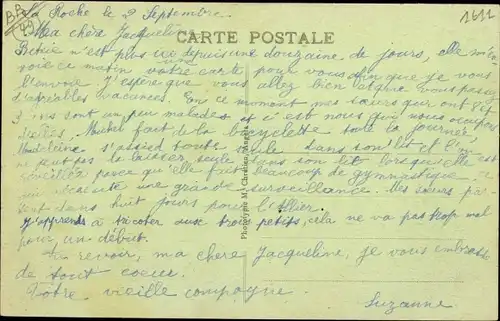 La Roche le 2 Septembre.
1611
BB
49
Ma chère Jacqueline
CARTE POSTALE
n'est plus ici depuis une douzaine de jours, elle m'en
voie ce matin votre carte pour vous afin que je vous
l'envoie. J'espère que vous allez bien et que vous passez
d'agréables vacances. En ce moment mes sœurs qui ont 8 et
3 ans sont un peu malades et c'est nous qui nous occupons
Michel fait de la bicyclette toute la journée,
Madeleine s'assied toute seule dans son lit et l'on
ne peut pas la laisser seule dans son lit lorsqu'elle est
éveillée parce qu'elle fait beaucoup de gymnastique ce
qui nécessite une grande surveillance. Mes sœurs
dans huit jours pour l'Allier.
J'apprends à tricoter aux trois petits, cela ne va pas trop mal
pour un début.
Au revoir, ma chère Jacqueline, je vous embrasse
de tout coeur.
Votre vieille compagne.
Suzanne
Phototypie M. Chrétien, Angers